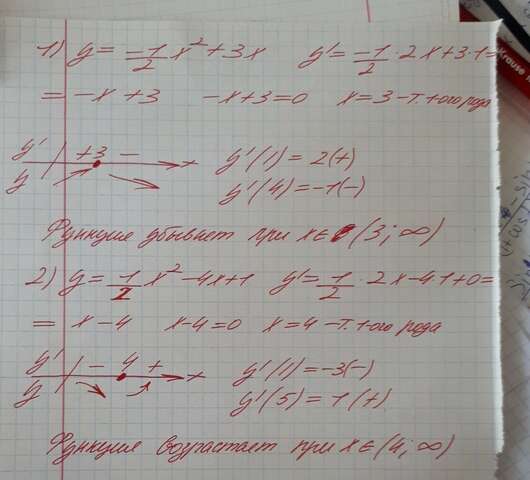 1) y = -1/2 x² + 3x    y' = -1/2 · 2x + 3·1 =
= -x + 3    -x + 3 = 0    x = 3 - т. 1-ого рода
y' + 3 - x    y'(1) = 2(+)
y    y'(4) = -1(-)
Функция убывает при x ∈ (3; ∞)
2) y = 1/2 x² - 4x + 1    y' = 1/2 · 2x - 4·1 + 0 =
= x - 4    x - 4 = 0    x = 4 - т. 1-ого рода
y' - 4 + x    y'(1) = -3(-)
y    y'(5) = 1(+)
Функция возрастает при x ∈ (4; ∞)
Krause